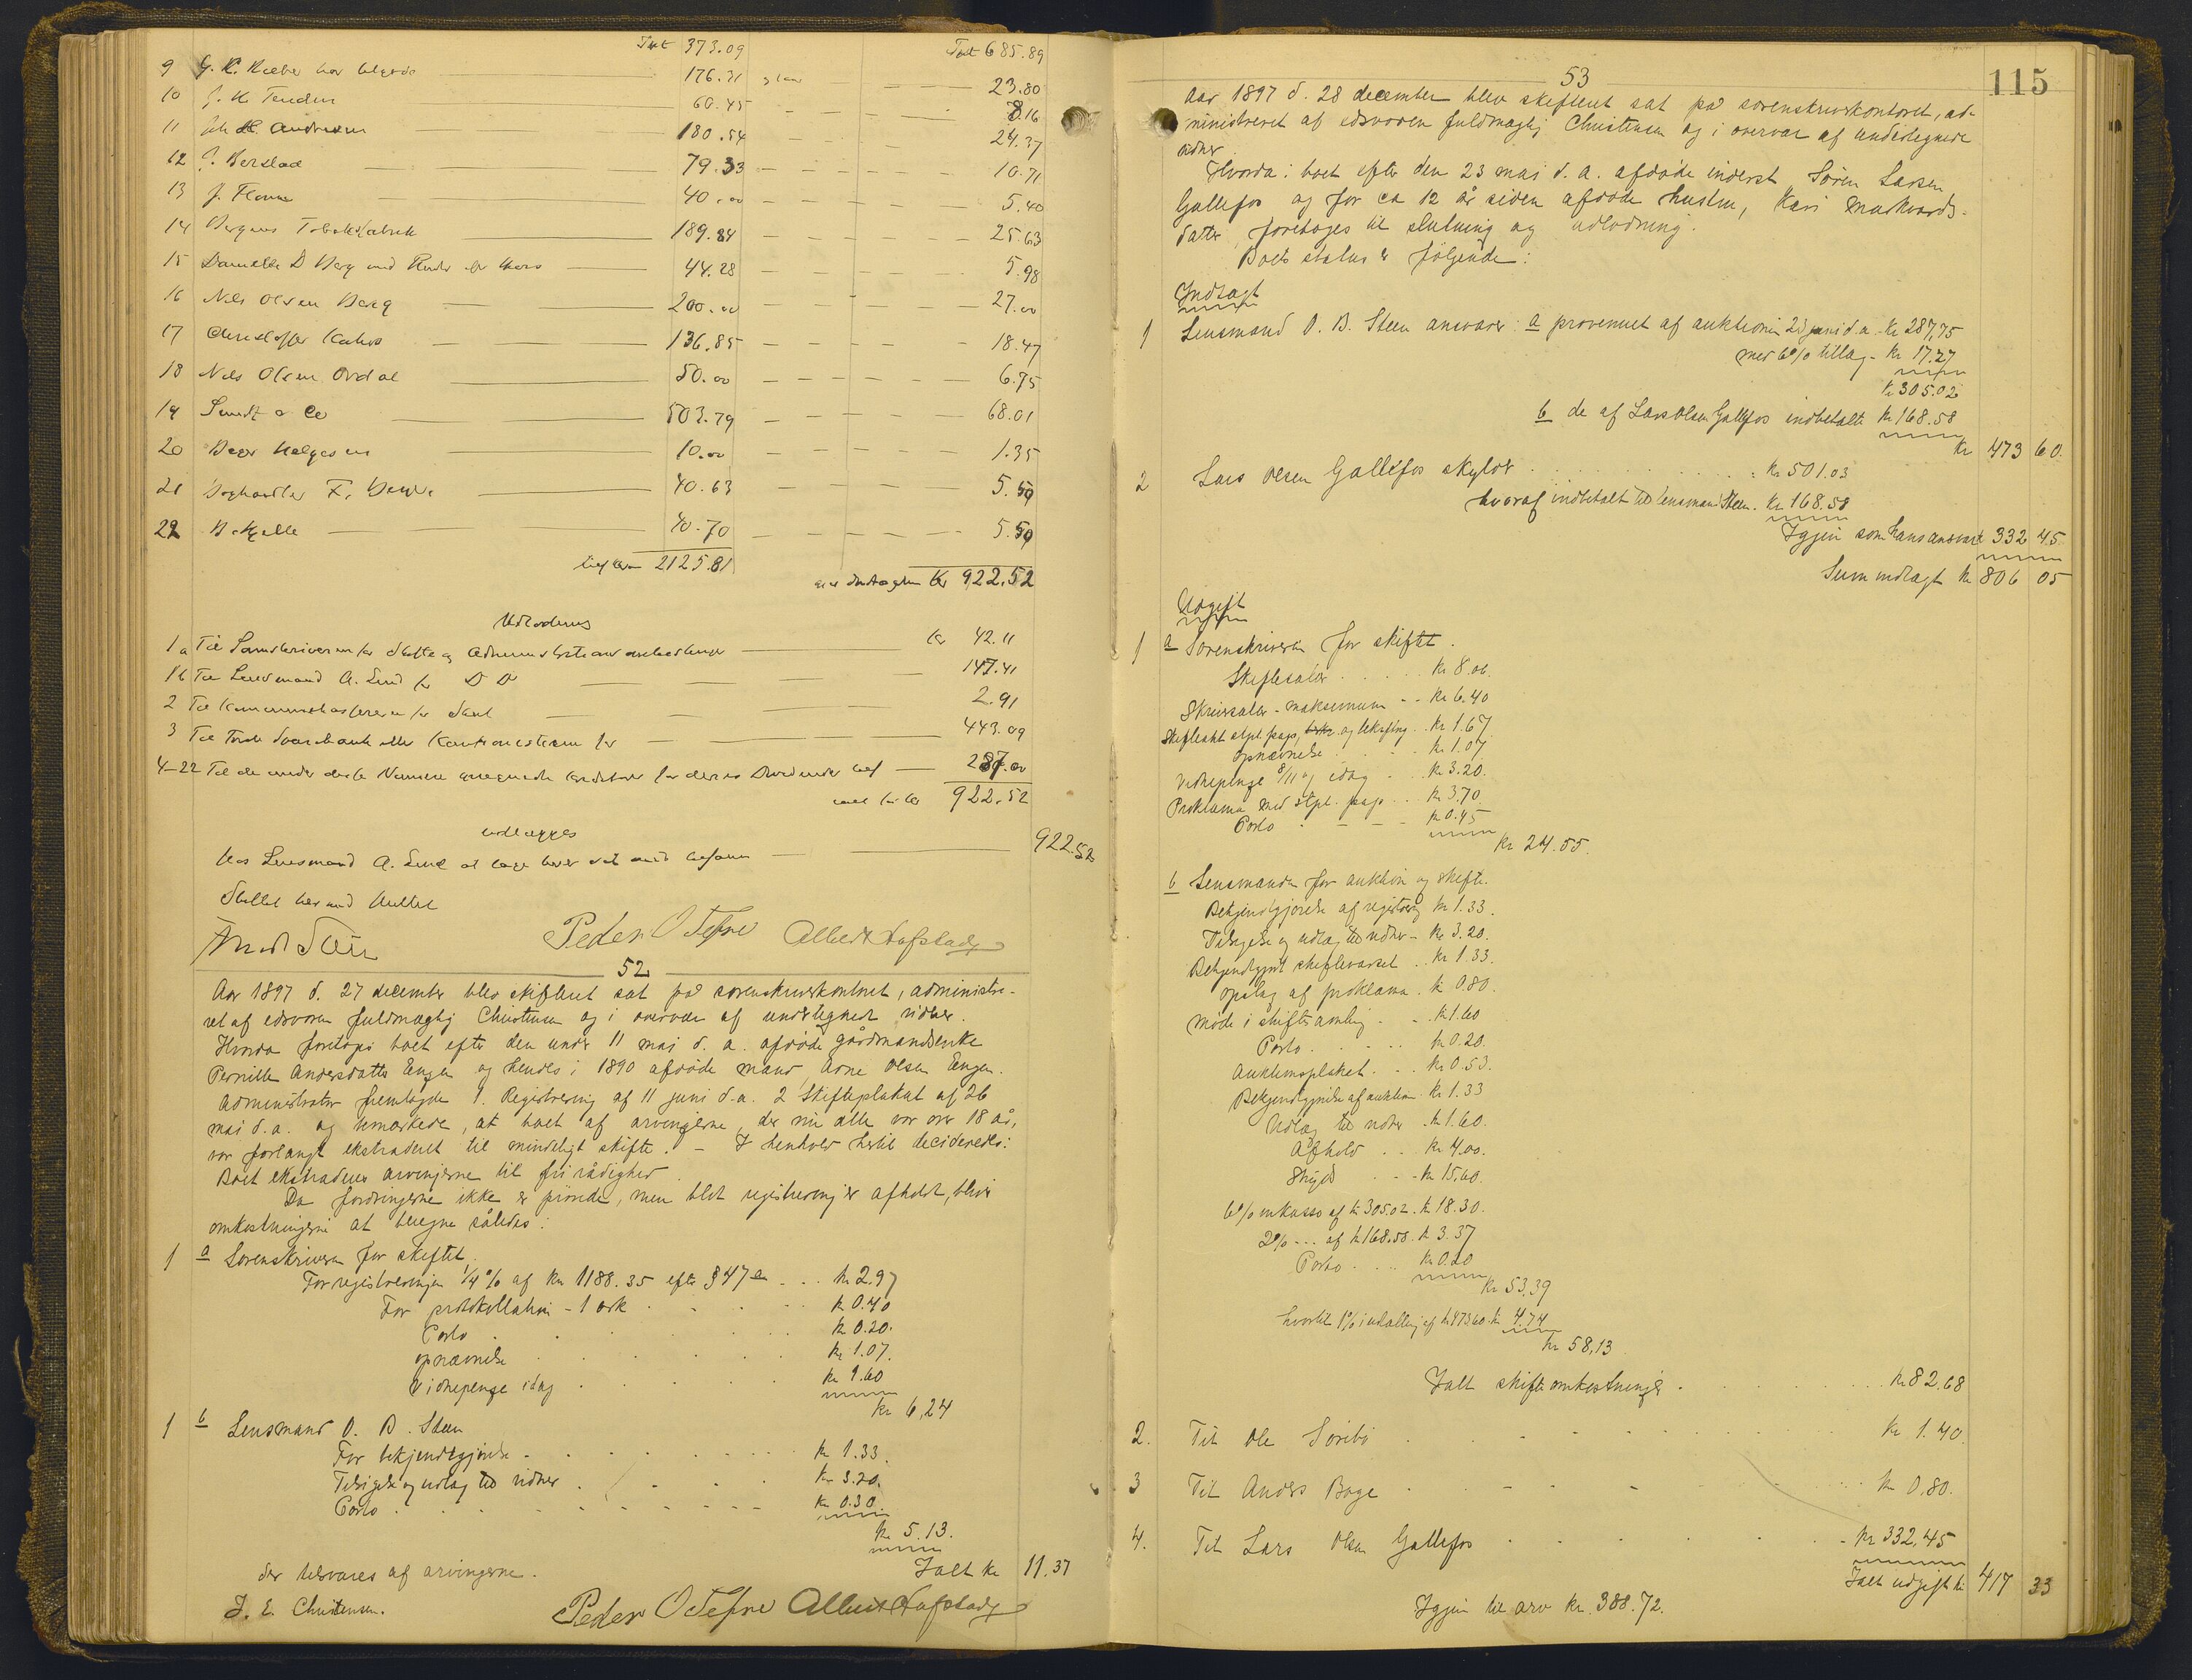 Trt 373.09 Trt 685.89
9 har 176.31 23.80
10 J. K. Tenden 60.45 8.16
11 H. Andresen 180.54 24.37
12 79.33 10.71
13 J. 40.00 5.40
14 Bergens Tobaksfabrik 189.84 25.63
15 Danielle D Berg 44.28 5.98
16 Nils Olsen Berg 200.00 27.00
17 Christoffer 136.85 18.47
18 Nils Olsen Ordal 50.00 6.75
19 Sundt & Co 503.79 68.01
20 Helgesen 10.00 1.35
21 Boghandler F. 40.63 5.50
22 40.70 5.50
2125.81
Kr 922.52
Udlodning
1 a Til Sorenskriveren for Skifte og kr 42.11
1 b Til Lensmand A. Lind for D D 147.41
2 Til Kommunekassereren for Skat 2.91
3 Til eller for 443.09
4–22 Til de under disse Numere for deres Dividende 287.00
922.52
udlægges
Hos Lensmand A. Lind 922.52
Skiftet hermed sluttet
Peder O Tefre Albert Hafstad
52
Aar 1897 d. 27 december blev skifteret sat på sorenskriverkontoret, administre-
ret af edsvoren fuldmægtig Christensen og i overvær af undertegnede vidner.
Hvorda foretoges boet efter den under 11 mai d. a. afdøde gårdmandsenke
Pernille Andersdatter Engen og hendes i 1890 afdøde mand, Arne Olsen Engen.
Administrator fremlagde 1. Registrering af 11 juni d.a. 2 Skifteplakat af 26
mai d.a. og bemærkede, at boet af arvingerne, der nu alle var over 18 år,
var forlangt ekstraderet til mindeligt skifte. – I henhold hertil decideredes:
Boet ekstraderes arvingerne til fri rådighed.
Da fordringerne ikke er prøvede, men blot registrering er afholdt, blive
omkostningerne at beregne således:
1 a Sorenskriveren for skiftet.
For registreringen 1/4 % af kr 1188.35 efter § 47 a . . . kr 2.97
For protokollation – 1 ark kr 0.40
Porto kr 0.20.
opnævnelse kr 1.07.
Vidnepenge idag kr 1.60
kr 6,24
1 b Lensmand O. B. Steen
For bekjendtgjørelse kr 1.33.
Tilsigelse og udlæg til vidner kr 3.20.
Porto kr 0.30.
kr 5.13.
der tilsvares af arvingerne. Ialt kr 11.37
J. E. Christensen. Peder O Tefre Albert Hafstad
115
53
Aar 1897 d. 28 december blev skifteret sat på sorenskriverkontoret, ad-
ministreret af edsvoren fuldmægtig Christensen og i overvær af undertegnede
vidner.
Hvorda: boet efter den 23 mai d. a. afdøde inderst Søren Larsen
Gallefos og for ca 12 år siden afdøde hustru, Kari Markvards-
datter, foretages til slutning og udlodning.
Boets status er følgende:
Indtægt
1 Lensmand O. B. Steen ansvarer: a provenuet af auktionen 23 juni d.a. kr 287,75
med 6% tillæg – kr 17.27
kr 305.02
b de af Lars Olsen Gallefos indbetalte kr 168.58
kr 473 60.
2 Lars Olsen Gallefos skylder . . . kr 501.03
hvoraf indbetalt til lensmand Steen. kr 168.58
Igjen som hans ansvar 332 45
Sum indtægt kr 806 05
Udgift
1 a Sorenskriveren for skiftet.
Skiftesalær . . . . . kr 8.06.
Skriversalær – maksimum . . kr 6.40
Skifteakt stpl. pap, og bekræftning . . kr 1.67.
opnævnelse . . . . kr 1.07
Vidnepenge 8/11 og idag . kr 3.20.
Proklama med stpl. pap. . . kr 3.70.
Porto . – – – kr 0.45
kr 24.55.
b Lensmanden for auktion og skifte.
Bekjendtgjørelse af registrering kr 1.33.
Tilsigelse og udlæg til vidner – kr 3.20.
Bekjendtgjort skiftevarsel . kr 1.33.
opslag af proklama . kr 0.80.
Møde i skiftesamling . – . kr 1.60
Porto . . . . . kr 0.20.
Auktionsplakat . . . kr 0.53.
Bekjendtgjørelse af auktion . kr 1.33
Udlæg til vidner . kr 1.60.
Afhold . . kr 4.00.
Skyds . . . kr 15.60.
6% inkasso af kr 305.02. kr 18.30.
2% . . . af kr 168.58. kr 3.37
Porto . . . . kr 0.20
kr 53.39
hvortil 1% i udbetaling af kr 473.60. kr 4.74
kr 58,13
Ialt skifteomkostninger . kr 82.68
2. Til Ole Søreibø kr 1.40.
3 Til Anders Bøge kr 0,80.
4. Til Lars Olsen Gallefos kr 332,45
Ialt udgift kr 417 33
Igjen til arv kr. 388.72.